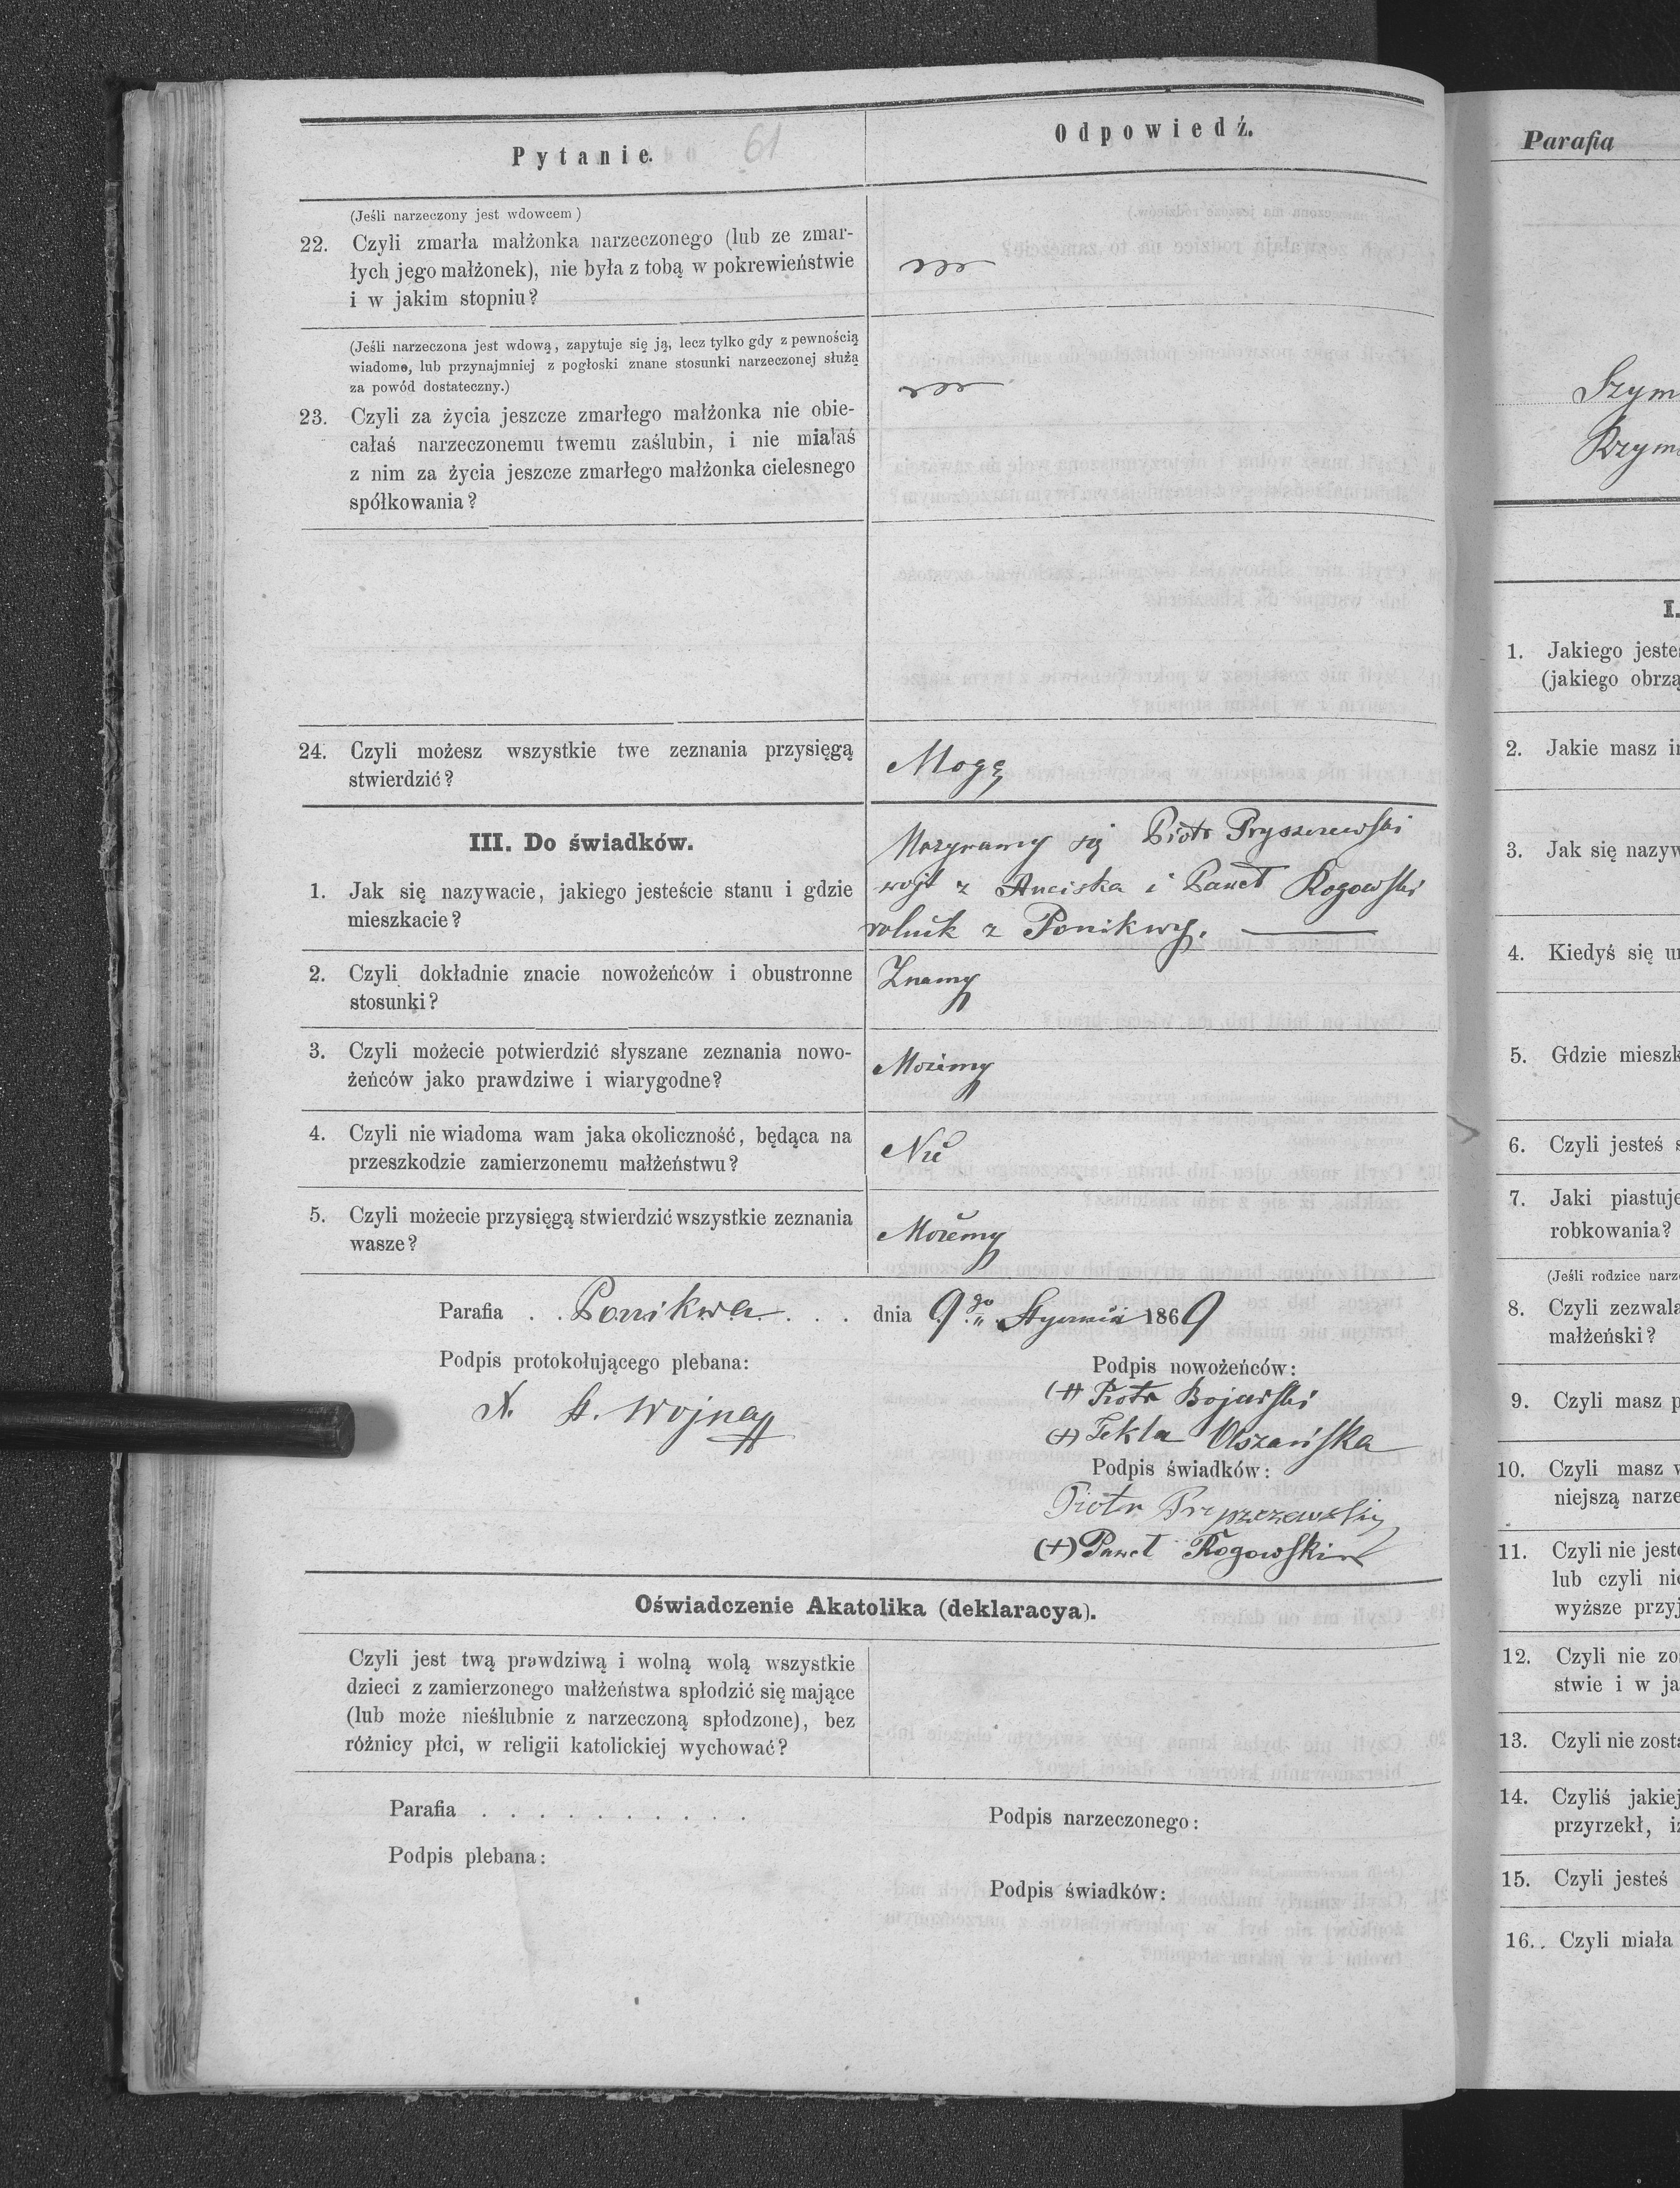 Pytanie. 61
Odpowiedź.
(Jeśli narzeczony jest wdowcem)
22. Czyli zmarła małżonka narzeczonego (lub ze zmar-
łych jego małżonek), nie była z tobą w pokrewieństwie
i w jakim stopniu?
(Jeśli narzeczona jest wdową, zapytuje się ją, lecz tylko gdy z pewnością
wiadome, lub przynajmniej z pogłoski znane stosunki narzeczonej służą
za powód dostateczny.)
23. Czyli za życia jeszcze zmarłego małżonka nie obie-
całaś narzeczonemu twemu zaślubin, i nie miałaś
z nim za życia jeszcze zmarłego małżonka cielesnego
spółkowania?
24. Czyli możesz wszystkie twe zeznania przysięgą
stwierdzić?
Mogę
III. Do świadków.
1. Jak się nazywacie, jakiego jesteście stanu i gdzie
mieszkacie?
Nazywamy się Piotr Pryszczewski
wojt z Anciska i Paweł Rogowski
rolnik z Ponikwy.
2. Czyli dokładnie znacie nowożeńców i obustronne
stosunki?
Znamy
3. Czyli możecie potwierdzić słyszane zeznania nowo-
żeńców jako prawdziwe i wiarygodne?
Możemy
4. Czyli nie wiadoma wam jaka okoliczność, będąca na
przeszkodzie zamierzonemu małżeństwu?
Nie
5. Czyli możecie przysięgą stwierdzić wszystkie zeznania
wasze?
Możemy
Parafia . . Ponikwa . . . dnia 9go Stycznia 1869
Podpis protokołującego plebana:
X. A. Wojna
Podpis nowożeńców:
(+) Piotr Bojarski
(+) Tekla Olszańska
Podpis świadków:
Piotr Pryszczewski
(+) Paweł Rogowski
Oświadczenie Akatolika (deklaracya).
Czyli jest twą prawdziwą i wolną wolą wszystkie
dzieci z zamierzonego małżeństwa spłodzić się mające
(lub może nieślubnie z narzeczoną spłodzone), bez
różnicy płci, w religii katolickiej wychować?
Parafia . . . . . . . . . . .
Podpis plebana:
Podpis narzeczonego:
Podpis świadków:
Parafia
Szym
I.
1. Jakiego jeste
(jakiego obrzą
2. Jakie masz i
3. Jak się nazyw
4. Kiedyś się u
5. Gdzie mieszk
6. Czyli jesteś s
7. Jaki piastuje
robkowania?
(Jeśli rodzice narz
8. Czyli zezwala
małżeński?
9. Czyli masz p
10. Czyli masz w
niejszą narze
11. Czyli nie jest
lub czyli nie
wyższe przyj
12. Czyli nie zo
stwie i w ja
13. Czyli nie zost
14. Czyliś jakiej
przyrzekł, i
15. Czyli jesteś
16. . Czyli miała